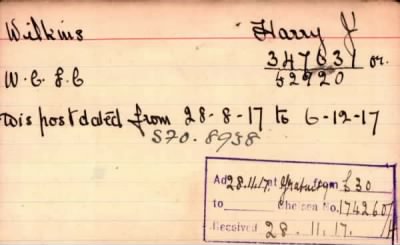 Wilkins Harry J
347631 or.
W.E.F.C 52920
Dis postdated from 28-8-17 to 6-12-17
S70-8938
Ad 28.11.17 at Gratuity from £30
to Chelsea No. 1742607/A
Received 28.11.17.